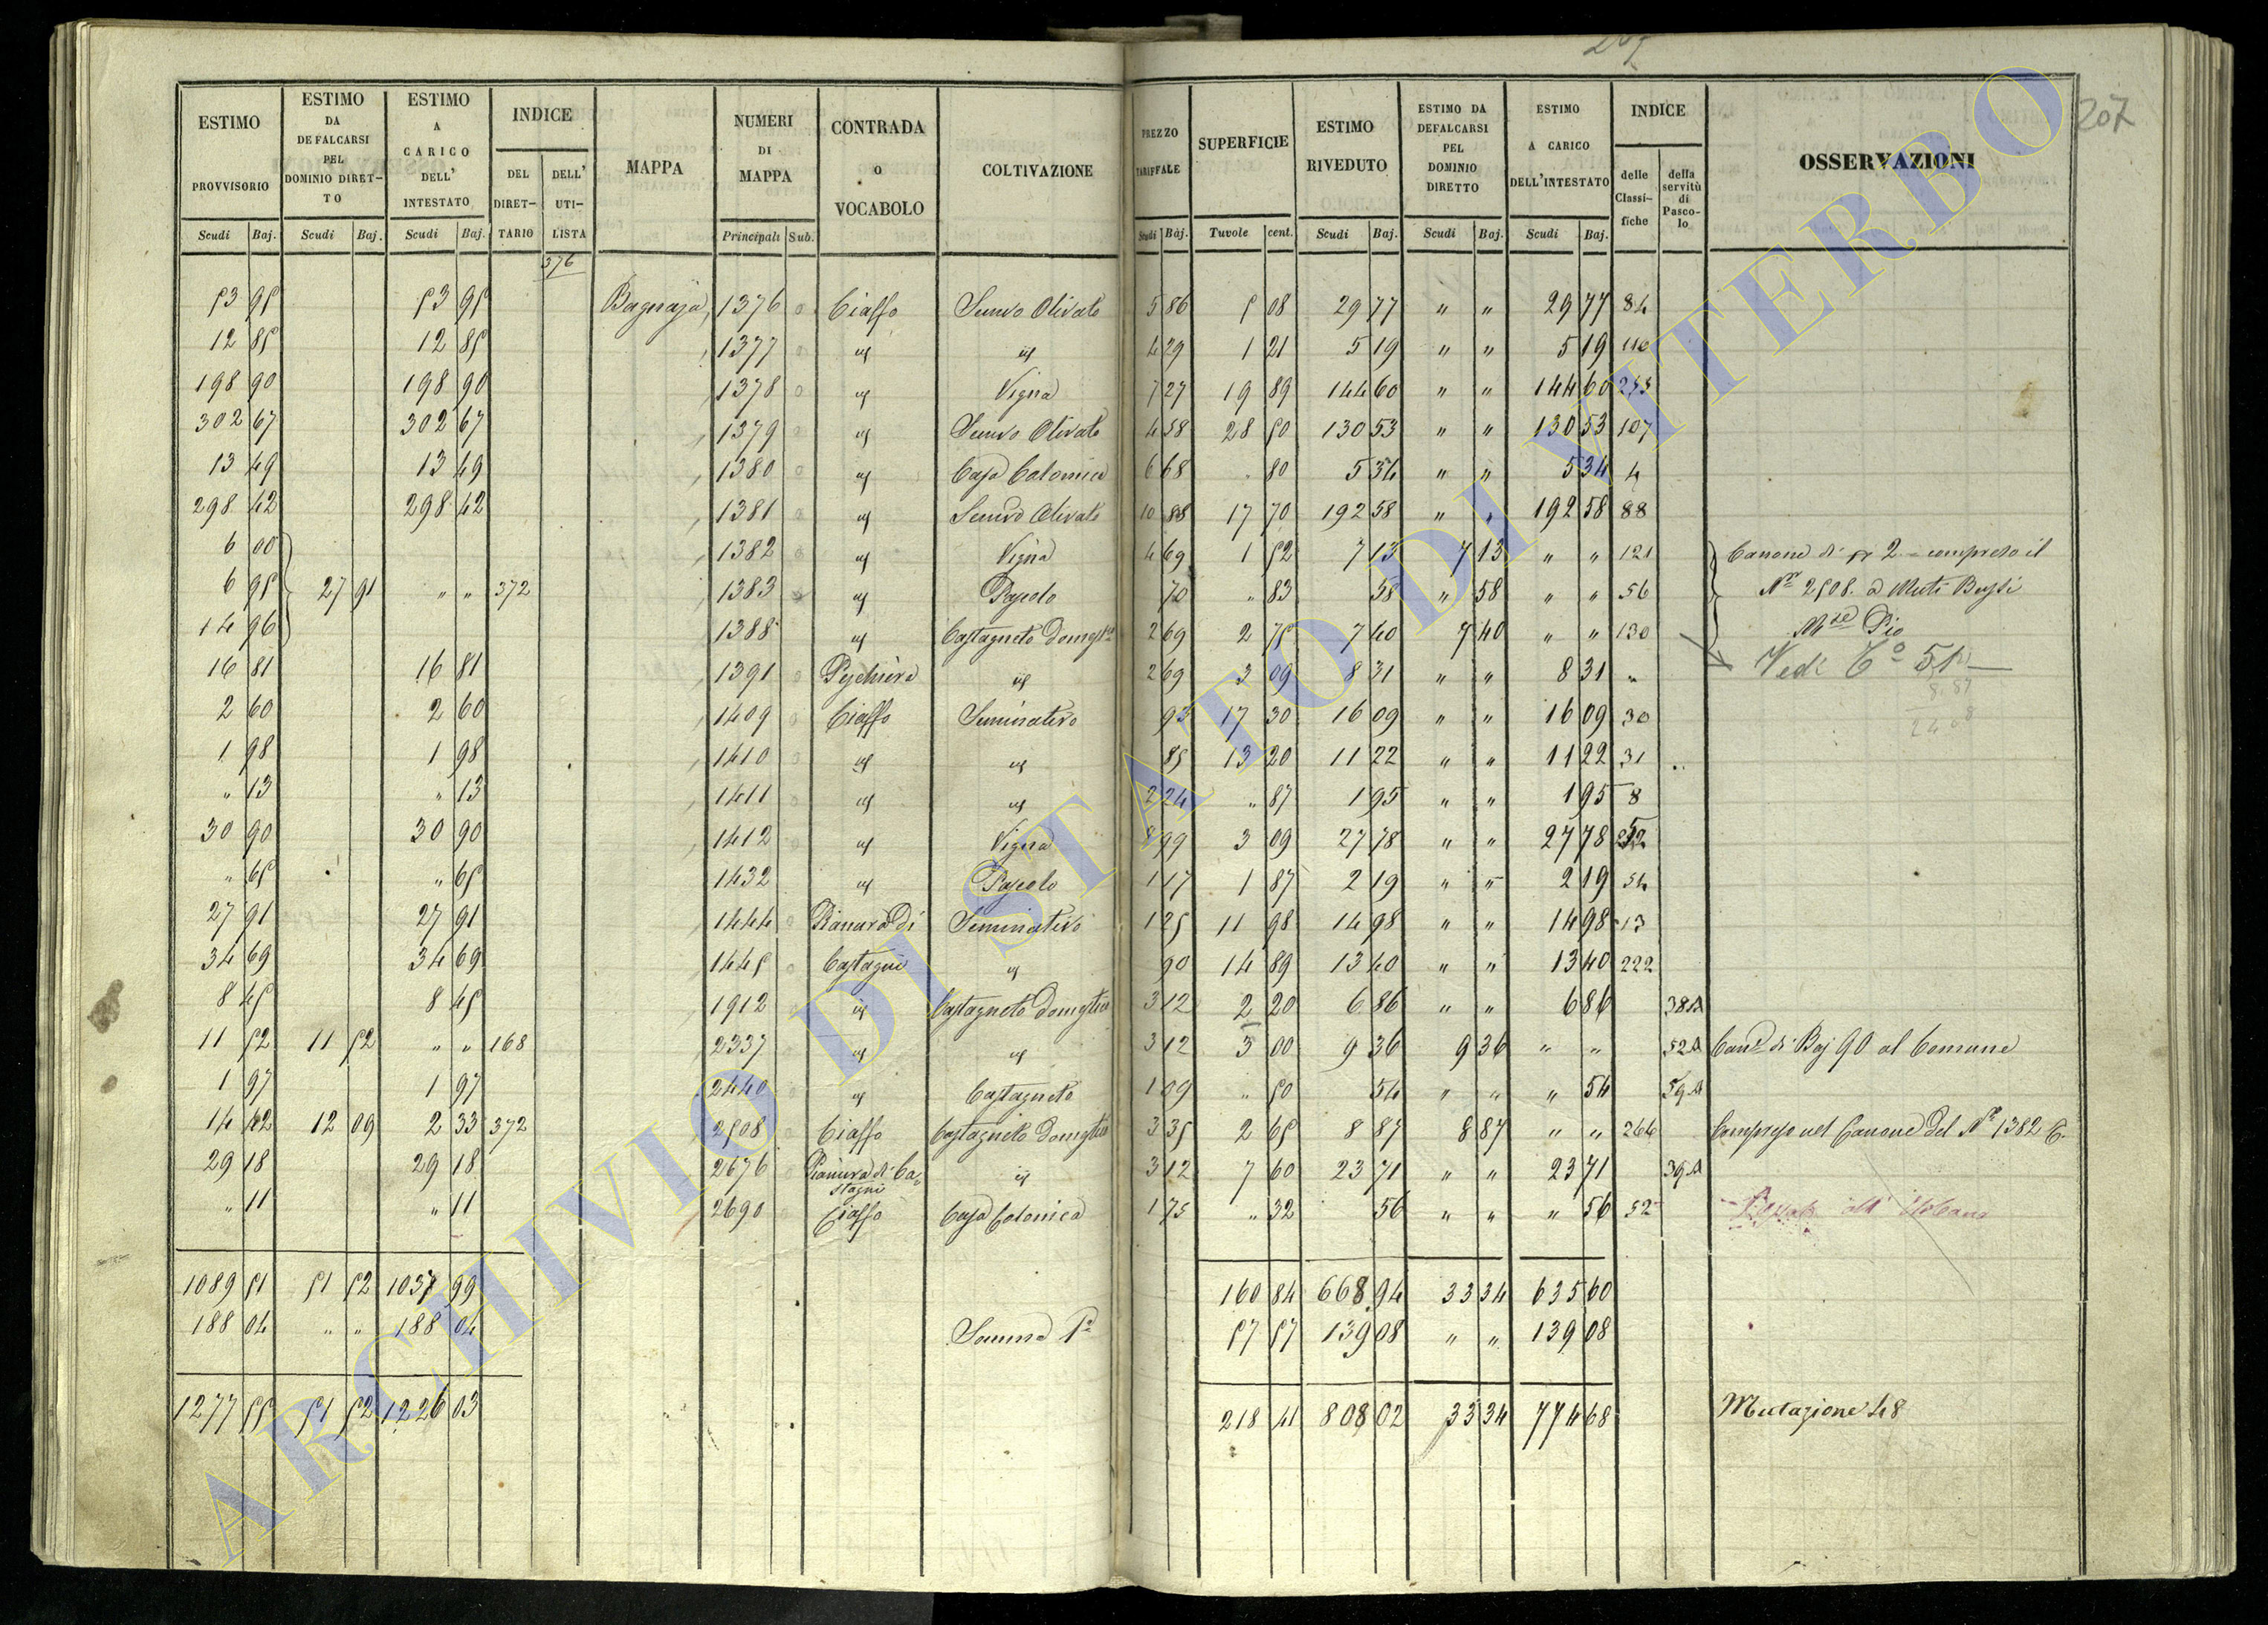 207
ESTIMO PROVVISORIO | ESTIMO DA DEFALCARSI PEL DOMINIO DIRETTO | ESTIMO A CARICO DELL' INTESTATO | INDICE DEL DIRETTARIO | DELL' UTILISTA | MAPPA | NUMERI DI MAPPA | CONTRADA O VOCABOLO | COLTIVAZIONE | PREZZO TARIFFALE | SUPERFICIE | ESTIMO RIVEDUTO | ESTIMO DA DEFALCARSI PEL DOMINIO DIRETTO | ESTIMO A CARICO DELL'INTESTATO | INDICE delle Classifiche | della servitù di Pascolo | OSSERVAZIONI
Scudi Baj. | Scudi Baj. | Scudi Baj. | Principali Sub. | Scudi Baj. | Tavole cent. | Scudi Baj. | Scudi Baj. | Scudi Baj.
376
53 95 | 53 95 | Bagnaja | 1376 | Ciaffo | Semvo Olivato | 5 86 | 5 08 | 29 77 | " " | 29 77 | 84
12 85 | 12 85 | 1377 | id | id | 4 29 | 1 21 | 5 19 | " " | 5 19 | 110
198 90 | 198 90 | 1378 | id | Vigna | 7 27 | 19 89 | 144 60 | " " | 144 60
302 67 | 302 67 | 1379 | id | Semvo Olivato | 4 58 | 28 50 | 130 53 | " " | 130 53 | 107
13 49 | 13 49 | 1380 | id | Casa Colonica | 6 68 | . 80 | 5 34 | " " | 5 34 | 4
298 42 | 298 42 | 1381 | id | Semvo Olivato | 10 88 | 17 70 | 192 58 | " " | 192 58 | 88
6 00 | 1382 | id | Vigna | 4 69 | 1 52 | 7 13 | 7 13 | " " | 121 | Canone di 2 - compreso il
6 95 | 27 91 | " " | 372 | 1383 | id | Pascolo | 70 | " 83 | 58 | " 58 | " " | 56 | No 2508. a Muti Bussi
14 96 | 1388 | id | Castagneto Domestco | 2 69 | 2 75 | 7 40 | 7 40 | " " | 130 | Mse Pio
16 81 | 16 81 | 1391 | Peschiera | id | 2 69 | 3 09 | 8 31 | " " | 8 31 | " | Vedi Co 51
8.87
2 60 | 2 60 | 1409 | Ciaffo | Seminativo | 93 | 17 30 | 16 09 | " " | 16 09 | 30
1 98 | 1 98 | 1410 | id | id | 85 | 13 20 | 11 22 | " " | 11 22 | 31
" 13 | " 13 | 1411 | id | id | 2 24 | " 87 | 1 95 | " " | 1 95 | 8
30 90 | 30 90 | 1412 | id | Vigna | 8 99 | 3 09 | 27 78 | " " | 27 78
" 65 | " 65 | 1432 | id | Pascolo | 1 17 | 1 87 | 2 19 | " " | 2 19 | 54
27 91 | 27 91 | 1444 | Pianura Di | Seminativo | 1 25 | 11 98 | 14 98 | " " | 14 98 | 13
34 69 | 34 69 | 1445 | Castagni | id | 90 | 14 89 | 13 40 | " " | 13 40 | 222
8 45 | 8 45 | 1912 | id | Castagneto Domestco | 3 12 | 2 20 | 6 86 | " " | 6 86 | 38 A
11 52 | 11 52 | " " | 168 | 2337 | id | id | 3 12 | 3 00 | 9 36 | 9 36 | " " | 52 A | Cane di Baj 90 al Comune
1 97 | 1 97 | 2440 | id | Castagneto | 1 09 | " 50 | 54 | " " | " 54 | 59 A
14 42 | 12 09 | 2 33 | 372 | 2508 | Ciaffo | Castagneto Domestco | 3 35 | 2 65 | 8 87 | 8 87 | " " | 266 | Compreso nel Canone del No 1382
29 18 | 29 18 | 2676 | Pianura di Castagni | id | 3 12 | 7 60 | 23 71 | " " | 23 71 | 39 A
" 11 | " 11 | 2690 | Ciaffo | Casa Colonica | 1 75 | " 32 | 56 | " " | " 56 | 52
1089 51 | 51 52 | 1037 99 | 160 84 | 668 94 | 33 34 | 635 60
188 04 | " " | 188 04 | Somma Pa | 57 57 | 139 08 | " " | 139 08
1277 55 | 51 52 | 1226 03 | 218 41 | 808 02 | 33 34 | 774 68 | Mutazione 48
ARCHIVIO DI STATO DI VITERBO